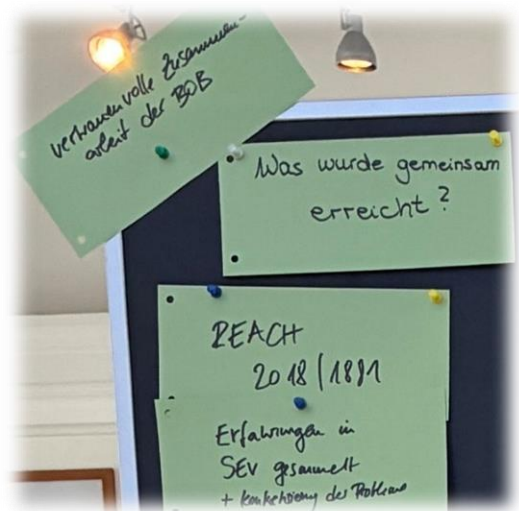 vertrauensvolle Zusammen-
arbeit der BOB
Was wurde gemeinsam
erreicht?
REACH
2018/1881
Erfahrungen in
SEV gesammelt
+ Konkretisierung der Probleme